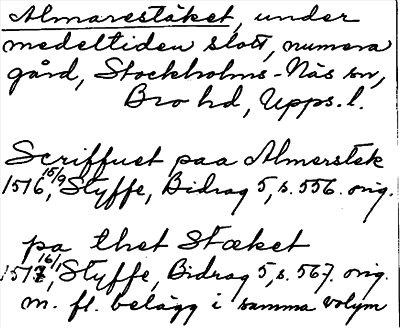 Almarestäket, under
medeltiden slott, numera
gård, Stockholms-Näs sn,
Bro hd, Upps. l.
Scriffuet paa Almerstek
15/9
1516, Styffe, Bidrag 5, s. 556. orig.
pa thet Stæket
16/1
1517, Styffe, Bidrag 5, s. 567. orig.
m. fl. belägg i samma volym